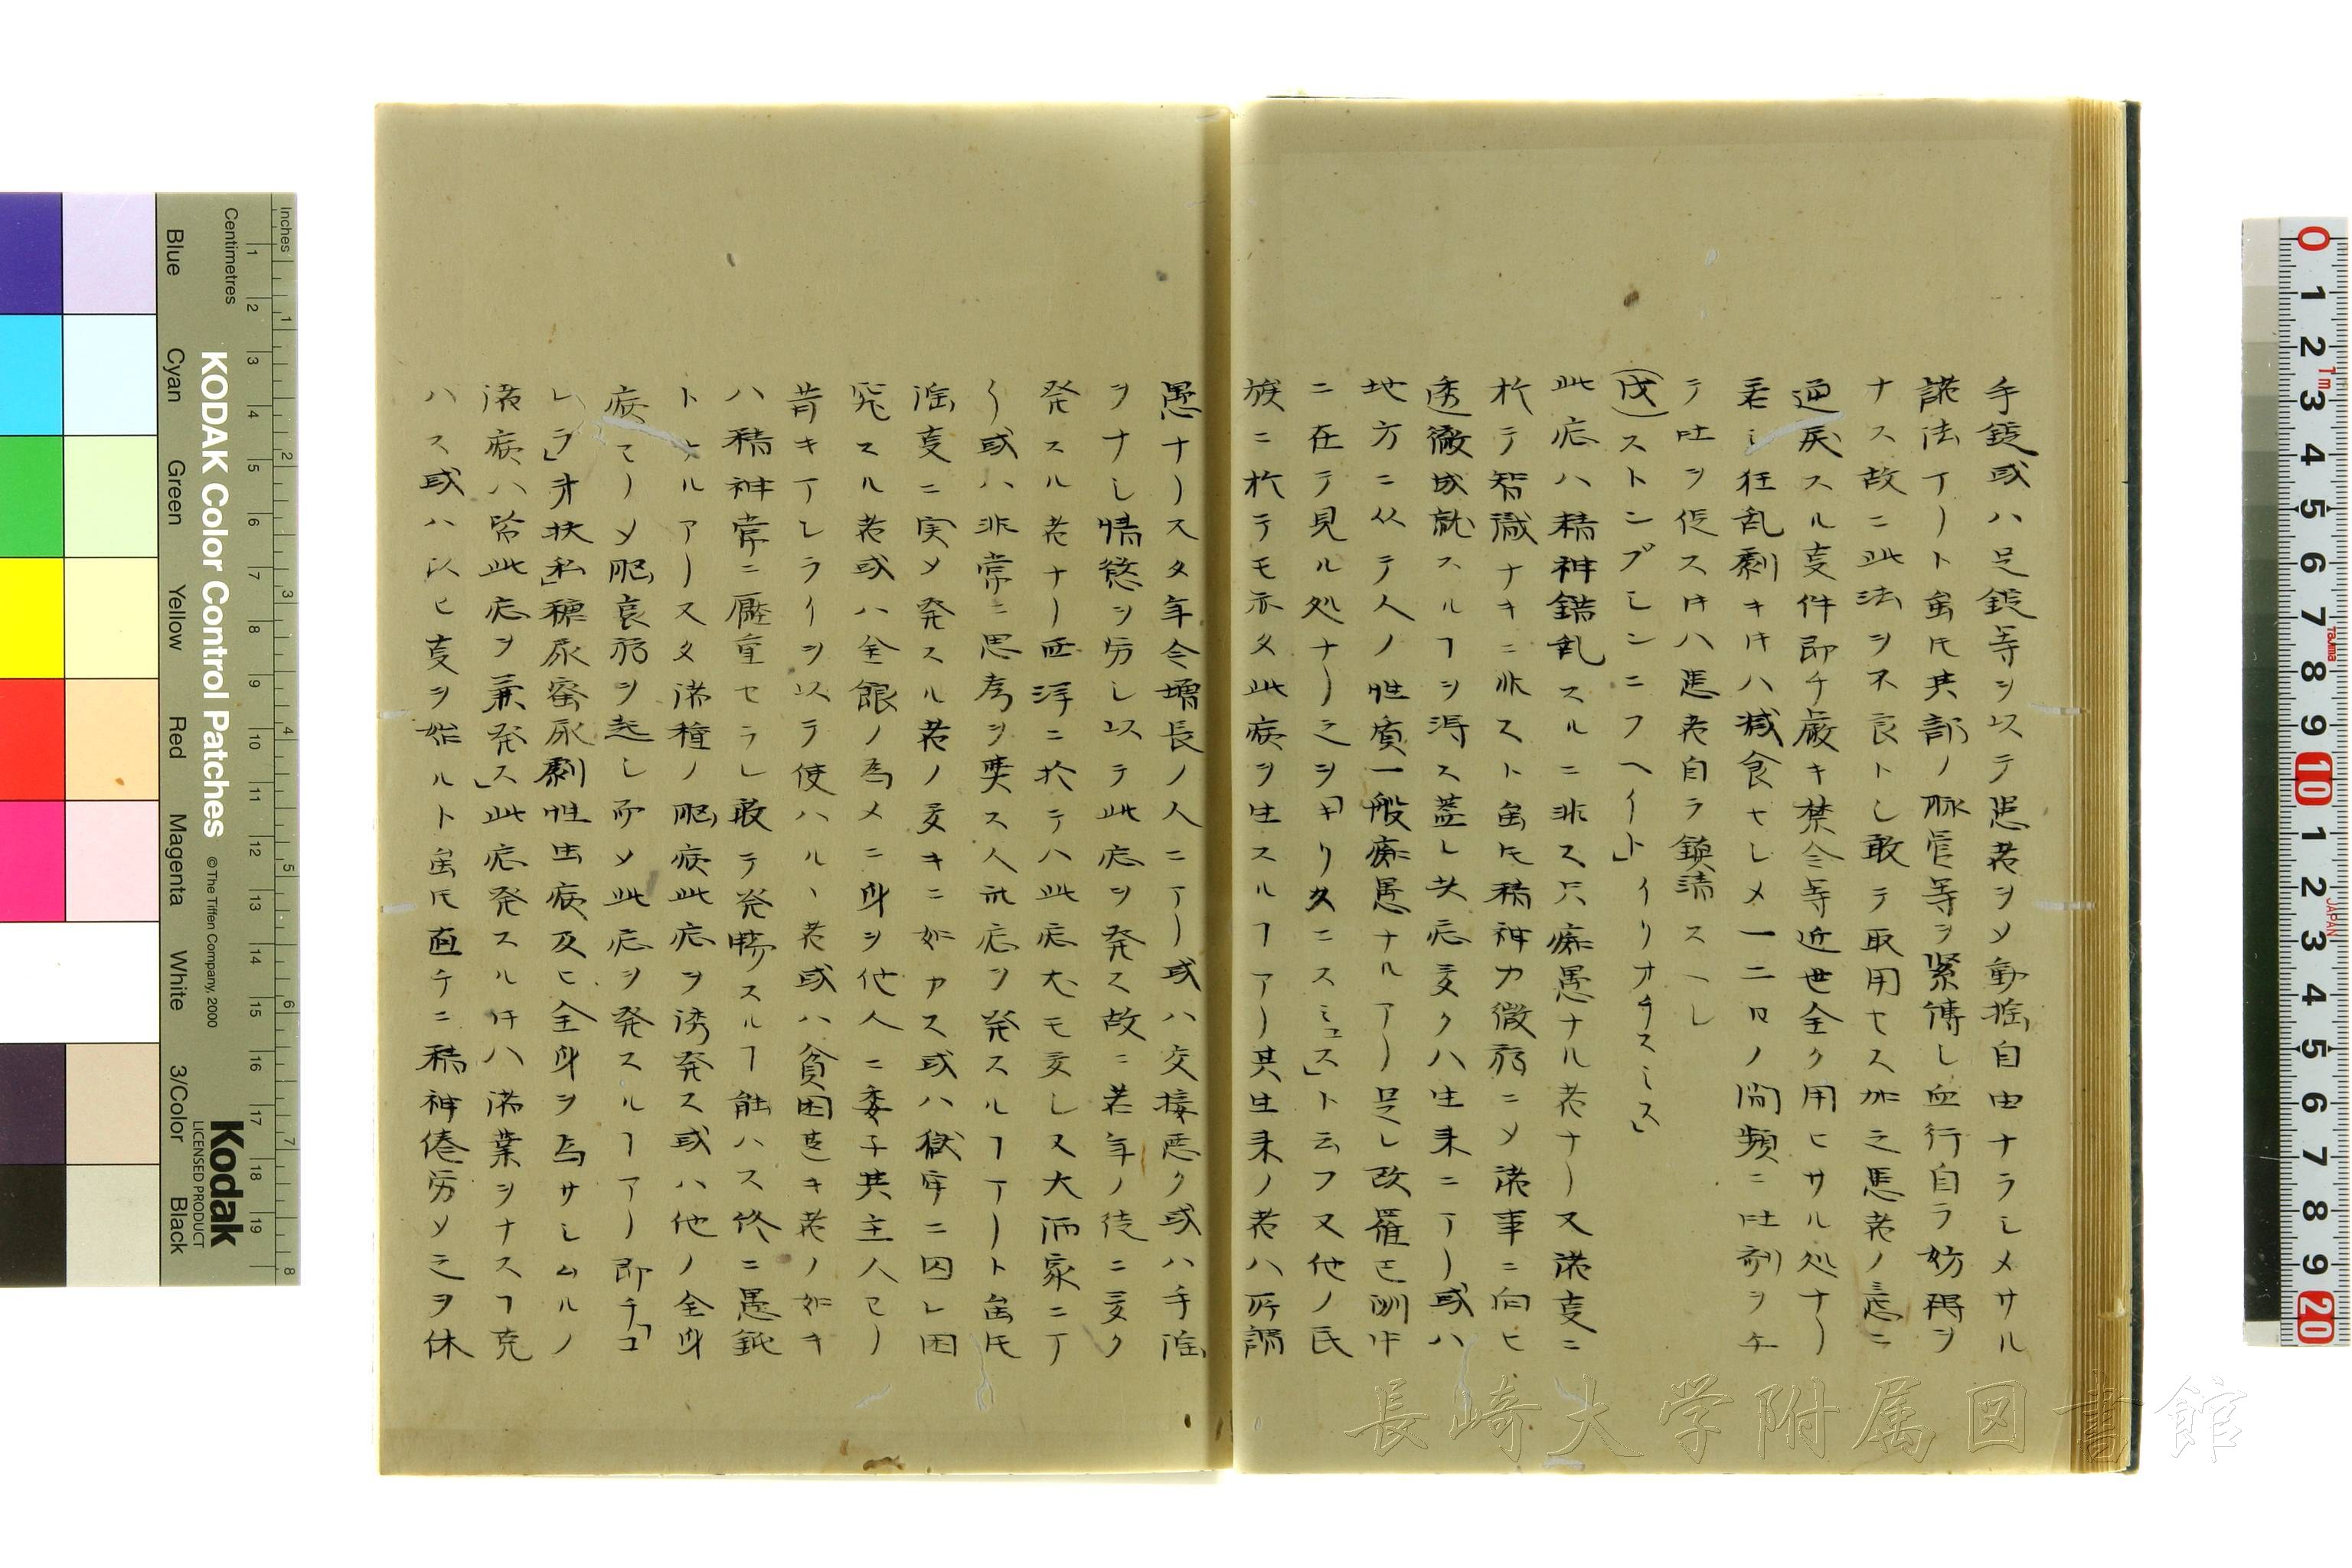 手錠或ハ足錠等ヲ以テ患者ヲメ動揺自由ナラシメサル
諸法アリト雖氏其部ノ脈管等ヲ緊縛シ血行自ラ妨碍ヲ
ナス故ニ此法ヲ不良トシ敢テ取用セス加之患者ノ意ニ
逆戻スル事件即チ厳キ禁令等近世全ク用ヒサル処ナリ
若シ狂乱劇キ片ハ減食セシメ一二日ノ間頻ニ吐剤ヲ与
テ吐ヲ促ス片ハ患者自ラ鎮清スヘシ
(戊)ストンプシンニフヘイト」イリオチスミス」
此症ハ精神錯乱スルニ非ス只痴愚ナル者ナリ又諸事ニ
於テ智識ナキニ非スト雖氏精神力微弱ニメ諸事ニ向ヒ
透徹成就スルヿヲ得ス蓋シ此症多クハ生来ニアリ或ハ
地方ニ从テ人ノ性質一般痴愚ナルアリ是レ改羅巴洲中
ニ在テ見ル処ナリ之ヲ「キリタニスミュス」ト云フ又他ノ民
族ニ於テモ亦タ此病ヲ生スルヿアリ其生来ノ者ハ所謂
愚ナリスタ年令増長ノ人ニアリ或ハ交接悪ク或ハ手淫
ヲナシ情慾ヲ労シ以テ此症ヲ発ス故ニ若年ノ徒ニ多ク
発スル者ナリ亜洋ニ於テハ此症尤モ多シ又大酒家ニア
リ或ハ非常ニ思考ヲ費ス人此症ヲ発スルヿアリト雖氏
淫事ニ実メ発スル者ノ多キニ如カス或ハ獄牢ニ囚レ困
究スル者或ハ金銀ノ為メニ身ヲ他人ニ委子其主人ヨリ
苛キアシラヒヲ以テ使ハルヽ者或ハ貧困甚キ者ノ如キ
ハ精神常ニ壓重セラレ敢テ発暢スルヿ能ハス終ニ愚鈍
トナルアリスタ諸種ノ脳病此症ヲ誘発ス或ハ他ノ全身
病ヨリメ脳衰弱ヲ起シ而メ此症ヲ発スルヿアリ即チ「コ
レラ」「チ扶私」糖尿蜜尿劇性虫病及ヒ全身ヲ為サシムルノ
諸病ハ皆此症ヲ兼発ス」此症発スル片ハ諸業ヲナスヿ克
ハス或ハ以ヒ事ヲ始ルト雖氏直チニ精神倦労メ之ヲ休
長崎大学附属図書館
KODAK Color Control Patches
© The Tiffen Company, 2000
Kodak
LICENSED PRODUCT
Inches
Centimetres
Blue
Cyan
Green
Yellow
Red
Magenta
White
3/Color
Black